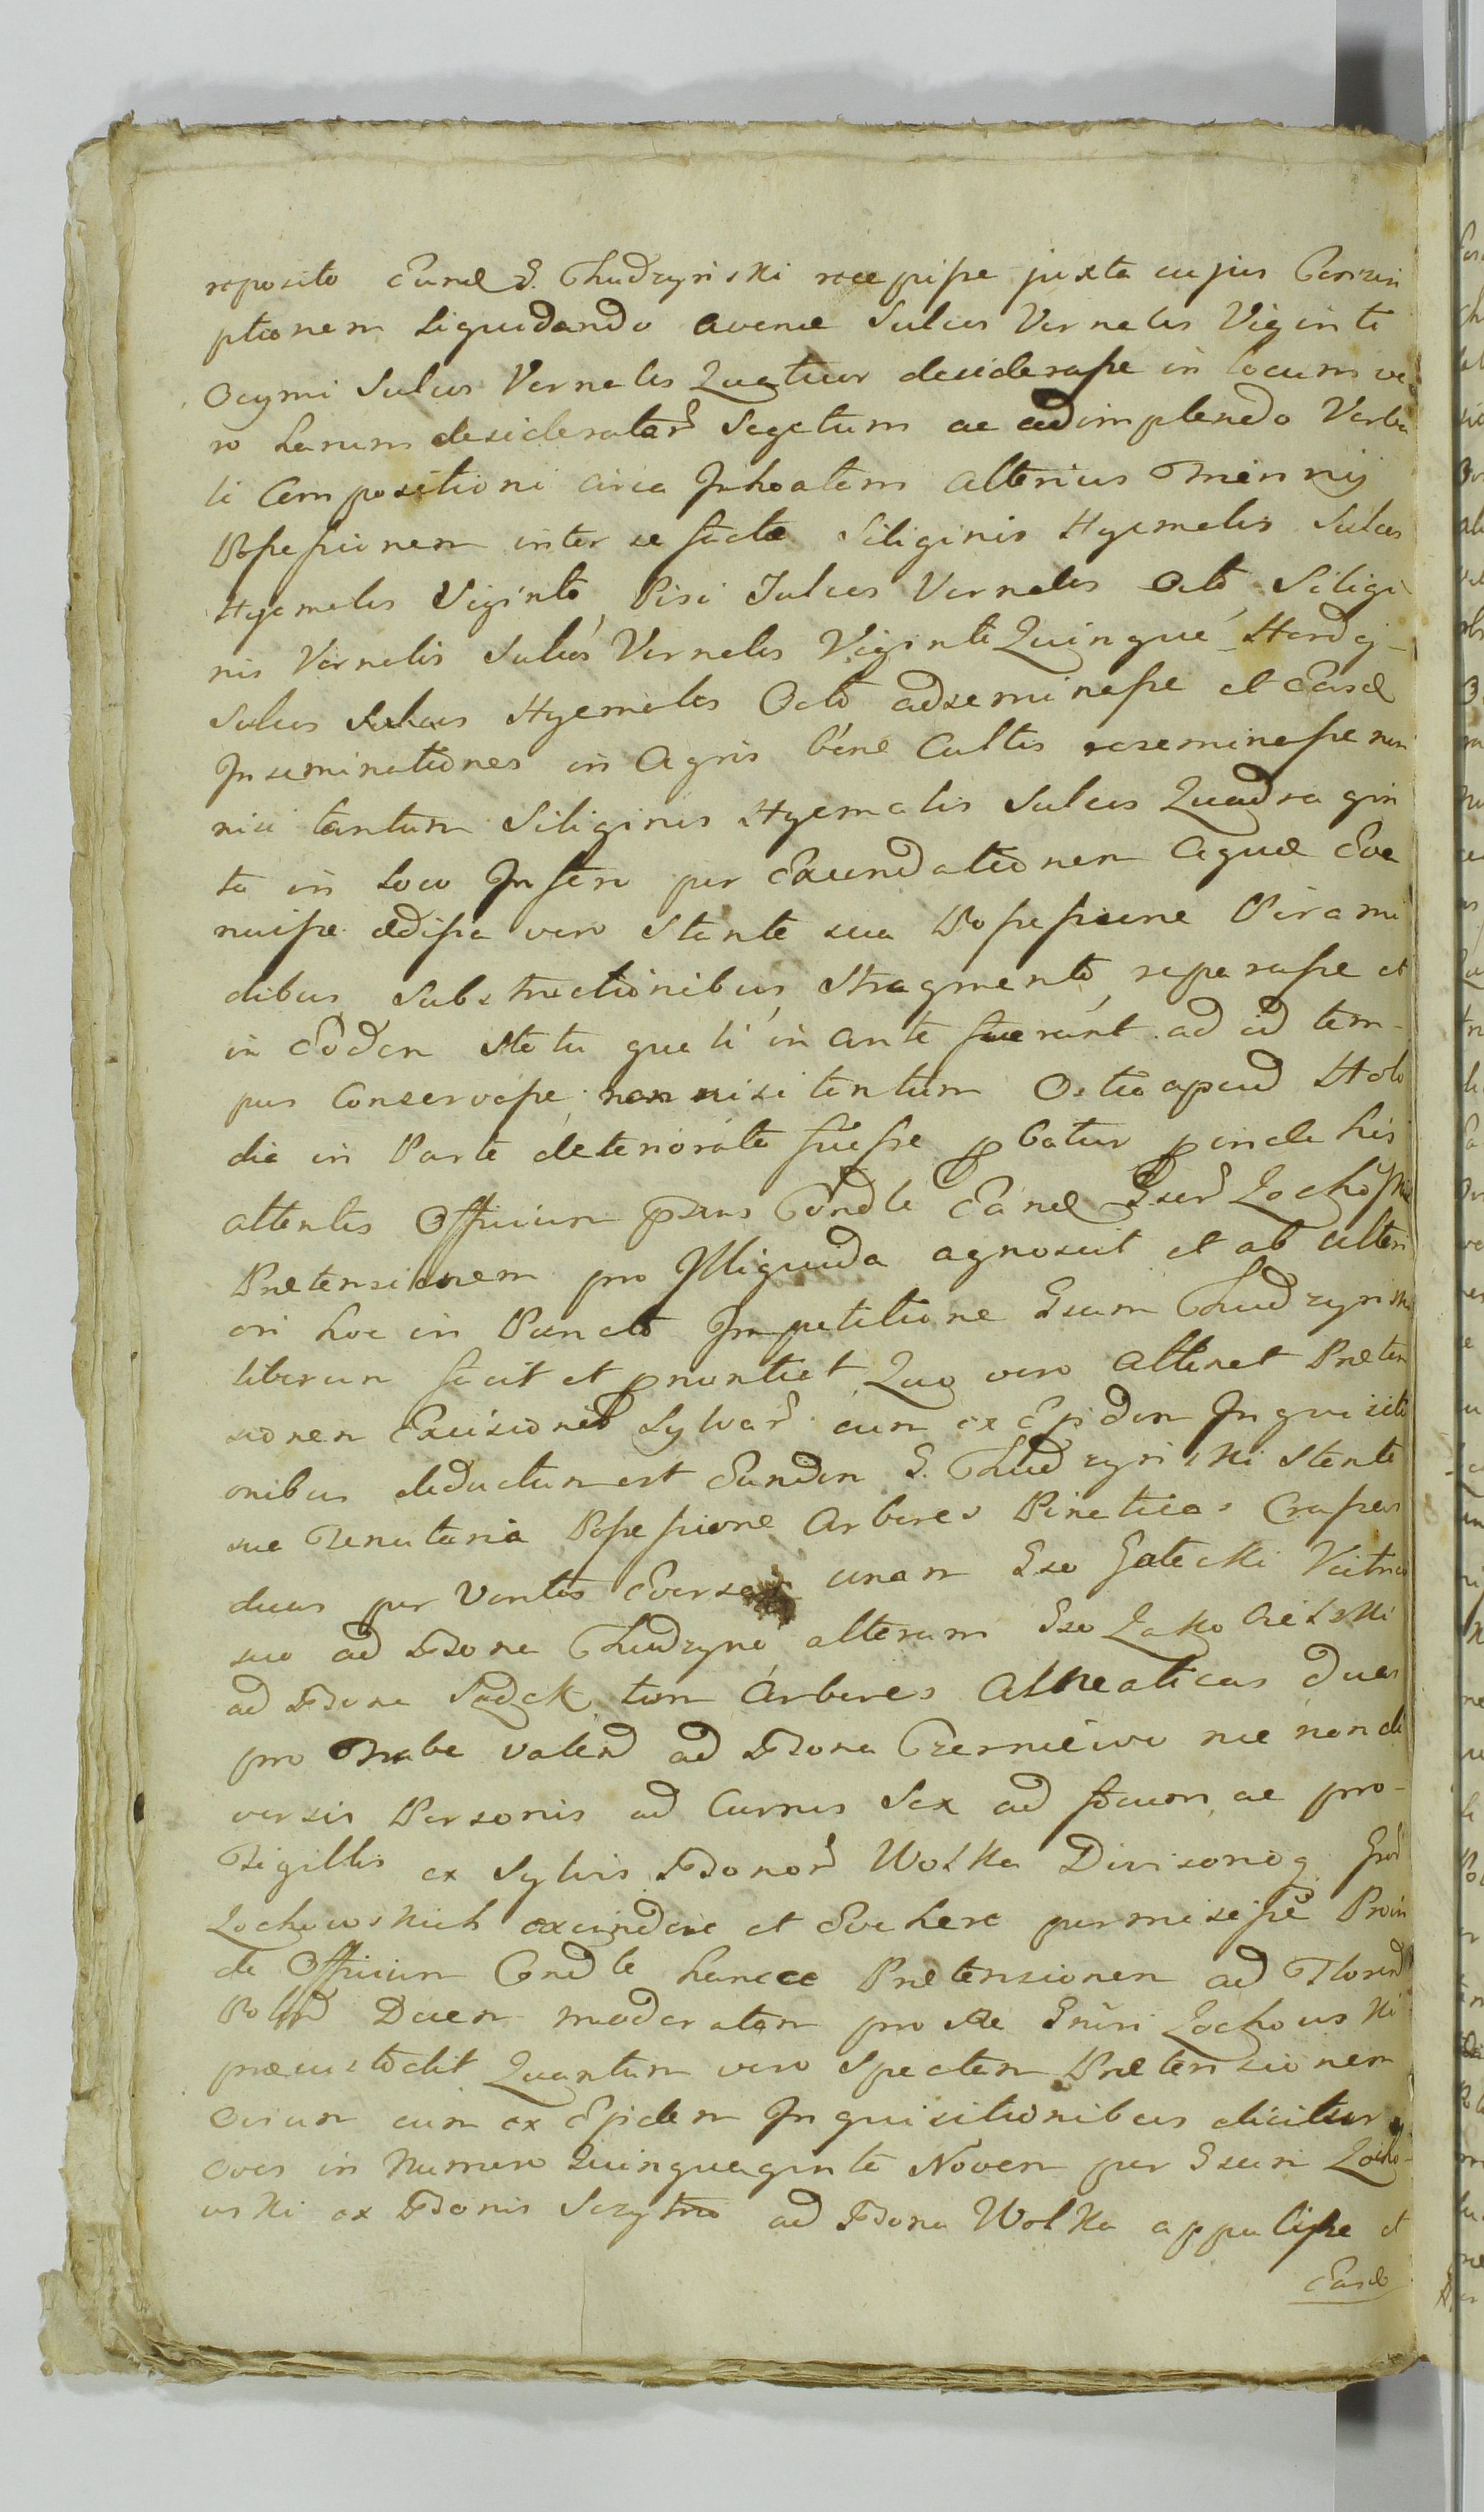 reposito Eund G. Chudzynski recepisse juxta cujus Conscri
ptionem liquidando avenae Sulcos Vernales Viginti
Ocymi Sulcos Vernales Quatuor desiderasse in locum ve
ro harum desideratar Segetum ac adimplendo Verba
li Compositioni circa Inhoatam alterius Triennij
Possessionem inter se factae Siliginis Hyemalis Sulcos
Hyemales Viginti, Pisi Sulcos Vernales Octo, Siligi
nis Vernalis Sulcos Vernales Viginti Quinque, Hordej
Sulcos Hyemales Octo adseminasse et Easd
Inseminationes in Agris bene Cultis reseminasse non
nisi tantum Siliginis Hyemalis Sulcos Quadragin
ta in Loco Infero per Exundationem Aquae Eva
nuisse aedificia vero Stante sua Possessione Pirami
dibus, Substructionibus, Stragmento, reparasse et
in Eodem Statu quali in ante fuerunt ad id tem-
pus Conservasse, non nisi tantum Ostia apud Sta
dia in Parte deteriorata fuisse pbatur pinde his
attentis Officium psens Condle Eand Gser Lochowski
Praetensionem pro Illiquida agnoscit et ab ulteri
ori hoc in Puncto Impetitione Gsum Chudzynski
liberum facit et pnuntiat, Quo vero attinet Praeten
sionem Excisionis Sylvar cum ex Ejsdem Inquisiti
onibus deductum est Eundem G. Chudzynski Stante
sua Tenutaria Possessione Arbores Pineticas Crassas
duas per Ventos Eversas unam Gso Gatecki Vitrico
suo ad Bona Chudzyno alteram Gso Zakolielski
ad Bona Sadek, tum Arbores Alneaticas duas
pro Trabe valend ad Bona Czerniewo nec non di
versis Personis ad Currus Sex ad focum ac pro-
Tigillis ex Sylvis Bonor Wolka Divisonog Gsor
Lochowskich excindere et Evehere permisisse Proin
de Officium Condle hancce Praetensionem ad Floren
Poll Duem moderatam pro Re Gnri Lochowski
praecustodit Quantum vero Spectam Praetensionem
Ovium cum ex Ejsdem Inquisitionibus elicitur
Oves in Numero Quinquaginta Novem per Gsum Locho-
wski ex Bonis Szytno ad Bona Wolka appulisse et
Easd